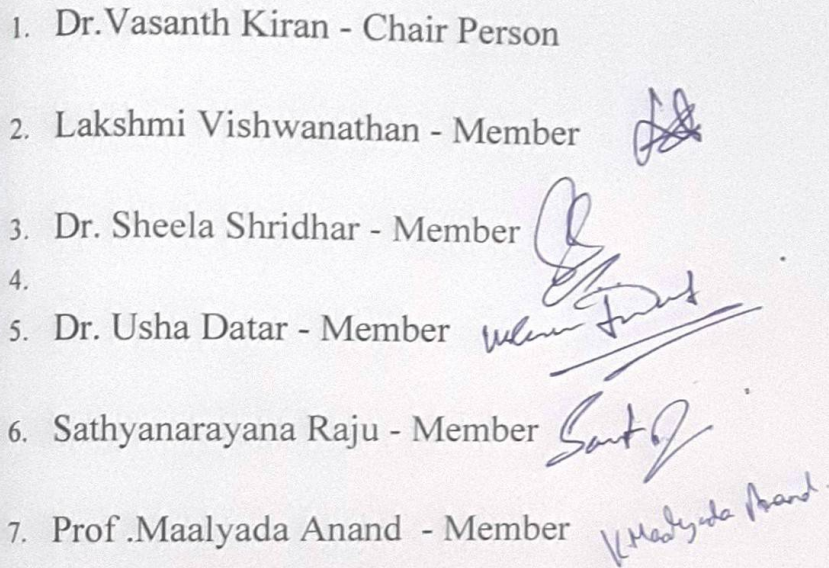 1. Dr.Vasanth Kiran - Chair Person
2. Lakshmi Vishwanathan - Member
3. Dr. Sheela Shridhar - Member
4.
5. Dr. Usha Datar - Member
6. Sathyanarayana Raju - Member
7. Prof .Maalyada Anand - Member K Maalyada Anand.